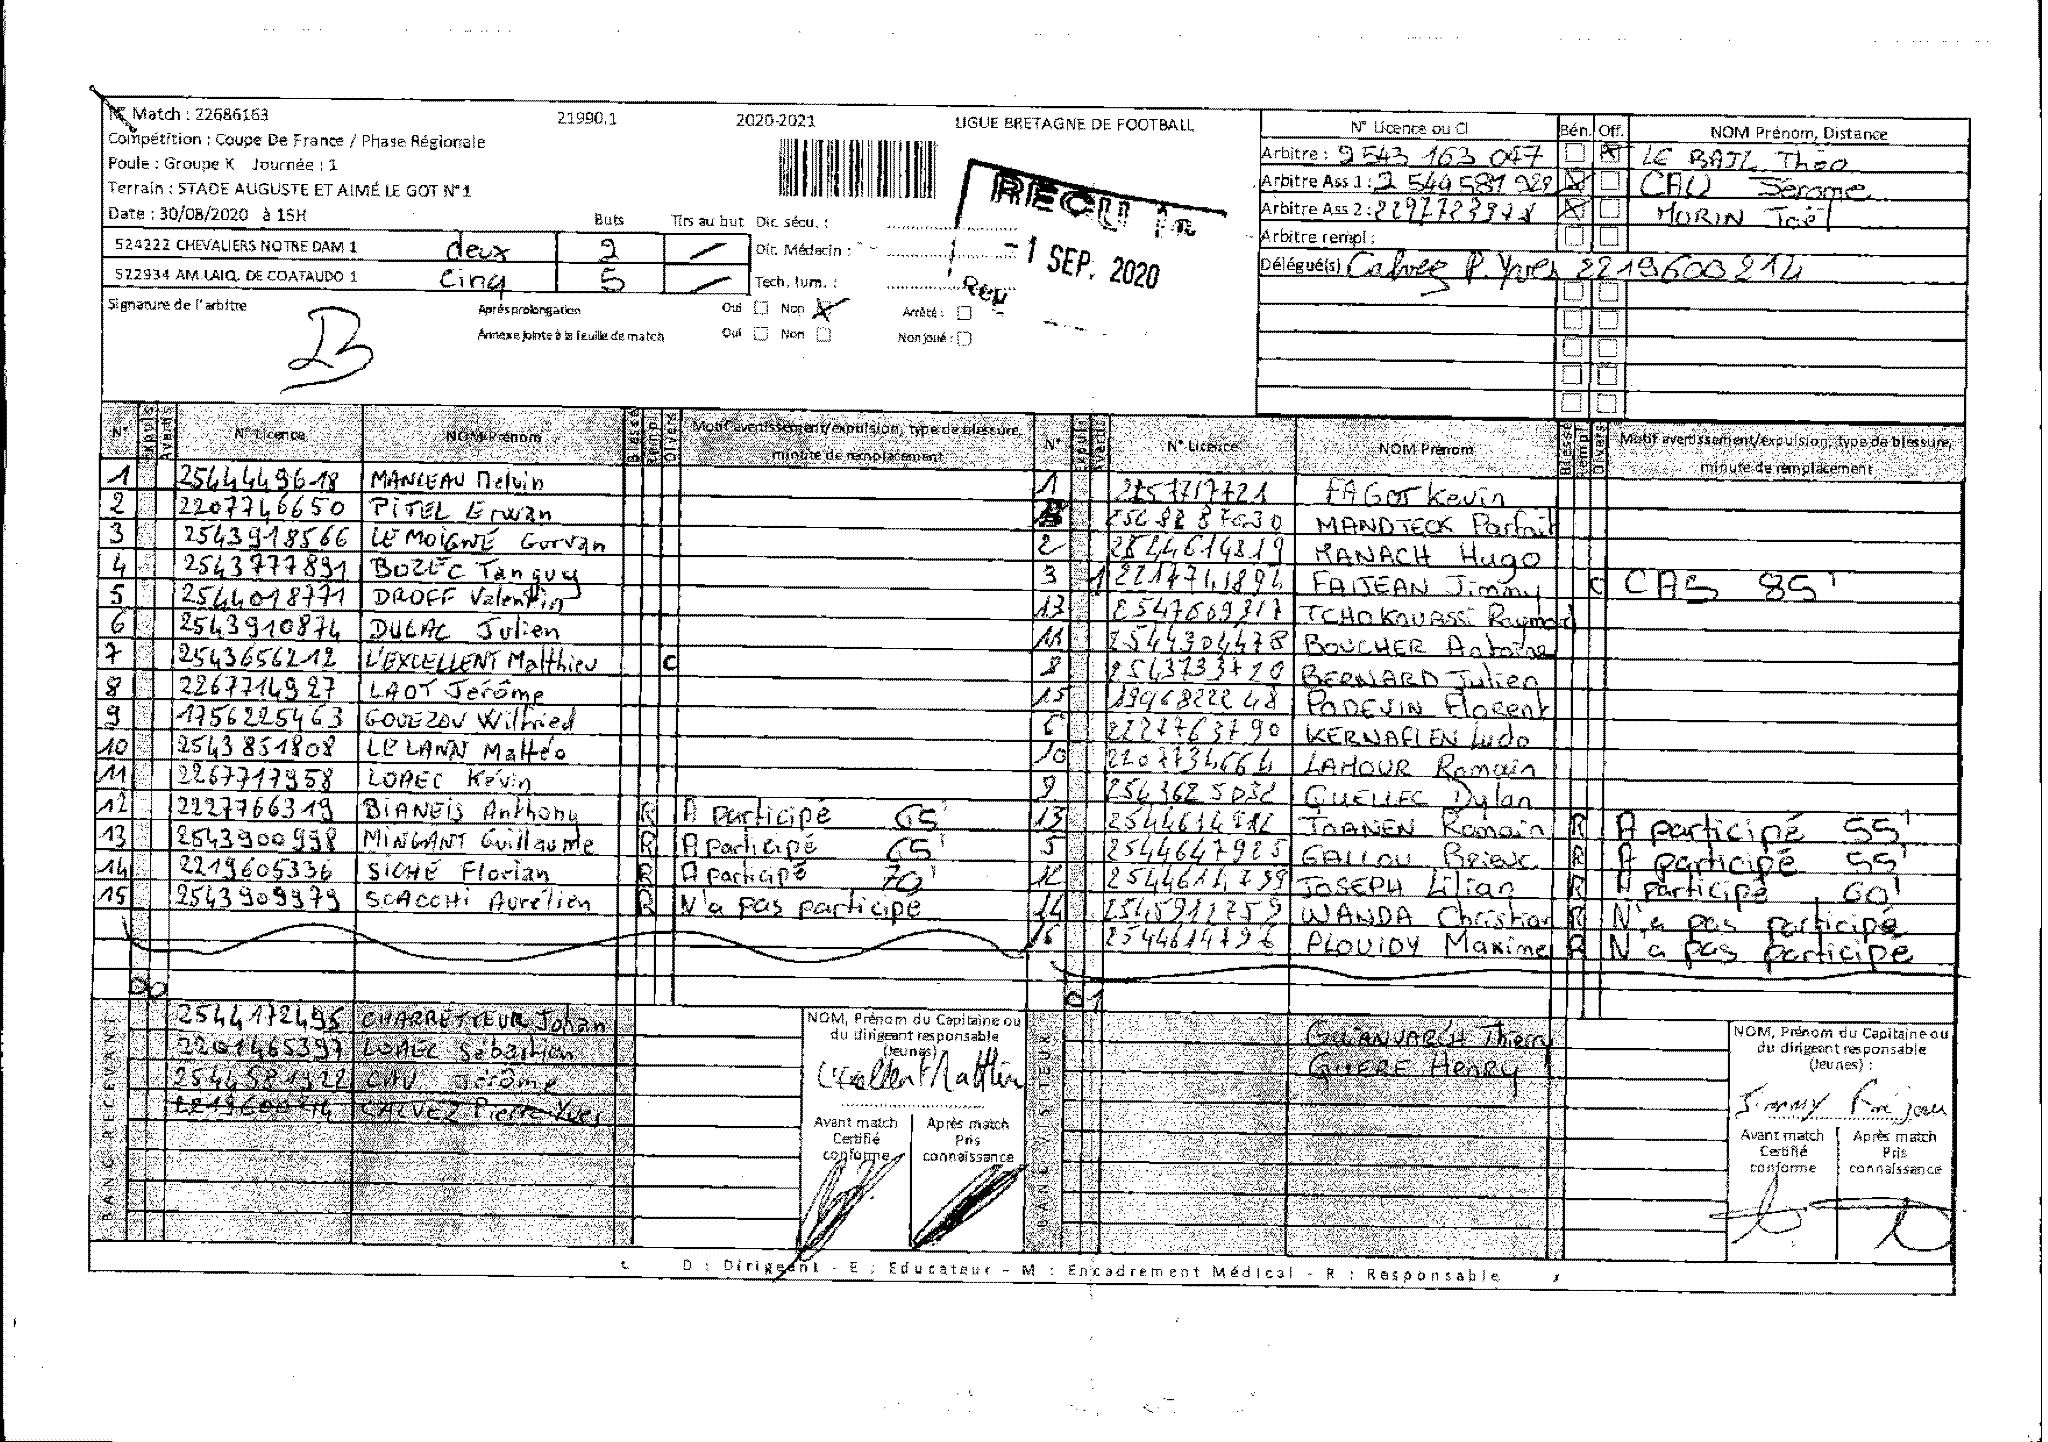 N° Match : 22686163 21990.1 2020-2021 LIGUE BRETAGNE DE FOOTBALL
Compétition : Coupe De France / Phase Régionale
Poule : Groupe K Journée : 1
Terrain : STADE AUGUSTE ET AIMÉ LE GOT N°1
Date : 30/08/2020 à 15H
Buts Tirs au but
524222 CHEVALIERS NOTRE DAM 1 deux 2
522934 AM. LAIQ. DE COATAUDO 1 cinq 5
Signature de l'arbitre
Après prolongation Oui Non
Annexe jointe à la feuille de match Oui Non
Dir. sécu. :
Dir. Médecin :
Tech. lum. :
Arrêté :
Non joué :
RECU le
-1 SEP. 2020
N° Licence ou CI Bén. Off. NOM Prénom, Distance
Arbitre : 2543 163 047 LE BAIL Théo
Arbitre Ass 1 : 2 544 581 929 CAU Jérome
Arbitre Ass 2 : MORIN Joël
Arbitre rempl :
Délégué(s) Calvez P. Yves 2219600214
N° Expuls Avert N° Licence NOM Prénom Blessé Rempl Divers Motif avertissement/expulsion, type de blessure, minute de remplacement
1 2544449618 MANCEAU Melvin
2 2207746650 PITEL Erwan
3 2543918566 LE MOIGNE Gorvan
4 2543777891 BOZEC Tanguy
5 2544018771 DROFF Valentin
6 2543910874 DULAC Julien
7 2543656212 L'EXCELLENT Matthieu C
8 2267714927 LAOT Jérôme
9 1756225463 GOUEZOU Wilfried
10 2543851808 LE LANN Mattéo
11 2267717958 LOAEC Kévin
12 2227766319 BIANEIS Anthony R A participé 65'
13 2543900998 MINGANT Guillaume R A participé 65'
14 2219605336 SICHÉ Florian R A participé 70'
15 2543909979 SCACCHI Aurélien R N'a pas participé
N° Expuls Avert N° Licence NOM Prénom Blessé Rempl Divers Motif avertissement/expulsion, type de blessure, minute de remplacement
1 FAGOT Kevin
MANDTECK Parfait
2 2544614819 MANACH Hugo
3 1 FAIJEAN Jimmy C CAS 85'
13 2547609717 TCHOKOUASSI Raymond
11 2544304478 BOUCHER Antoine
8 2543733720 BERNARD Julien
15 PODEVIN Florent
6 2227763790 KERNAFLEN Ludo
10 2207734664 LAMOUR Romain
9 GUELLEC Dylan
13 JOANEN Romain R A participé 55'
5 2544647925 GALLOU Brieuc R A participé 55'
12 JOSEPH Lilian R A participé 60'
14 2545912759 WANDA Christian R N'a pas participé
16 2544614796 PLOUIDY Maxime R N'a pas participé
0 0
0 1
BANC RECEVANT
2544172495 CHARRETTEUR Johan
2201465397 LOAEC Sébastien
2544581922 CAU Jérôme
2219600214 CALVEZ Pierre-Yves
NOM, Prénom du Capitaine ou du dirigeant responsable (Jeunes)
L'excellent Matthieu
Avant match Certifié conforme
Après match Pris connaissance
BANC VISITEUR
GUIANVARC'H Thierry
GUERE Henry
NOM, Prénom du Capitaine ou du dirigeant responsable (Jeunes) :
Jimmy
Avant match Certifié conforme
Après match Pris connaissance
D : Dirigeant - E : Educateur - M : Encadrement Médical - R : Responsable